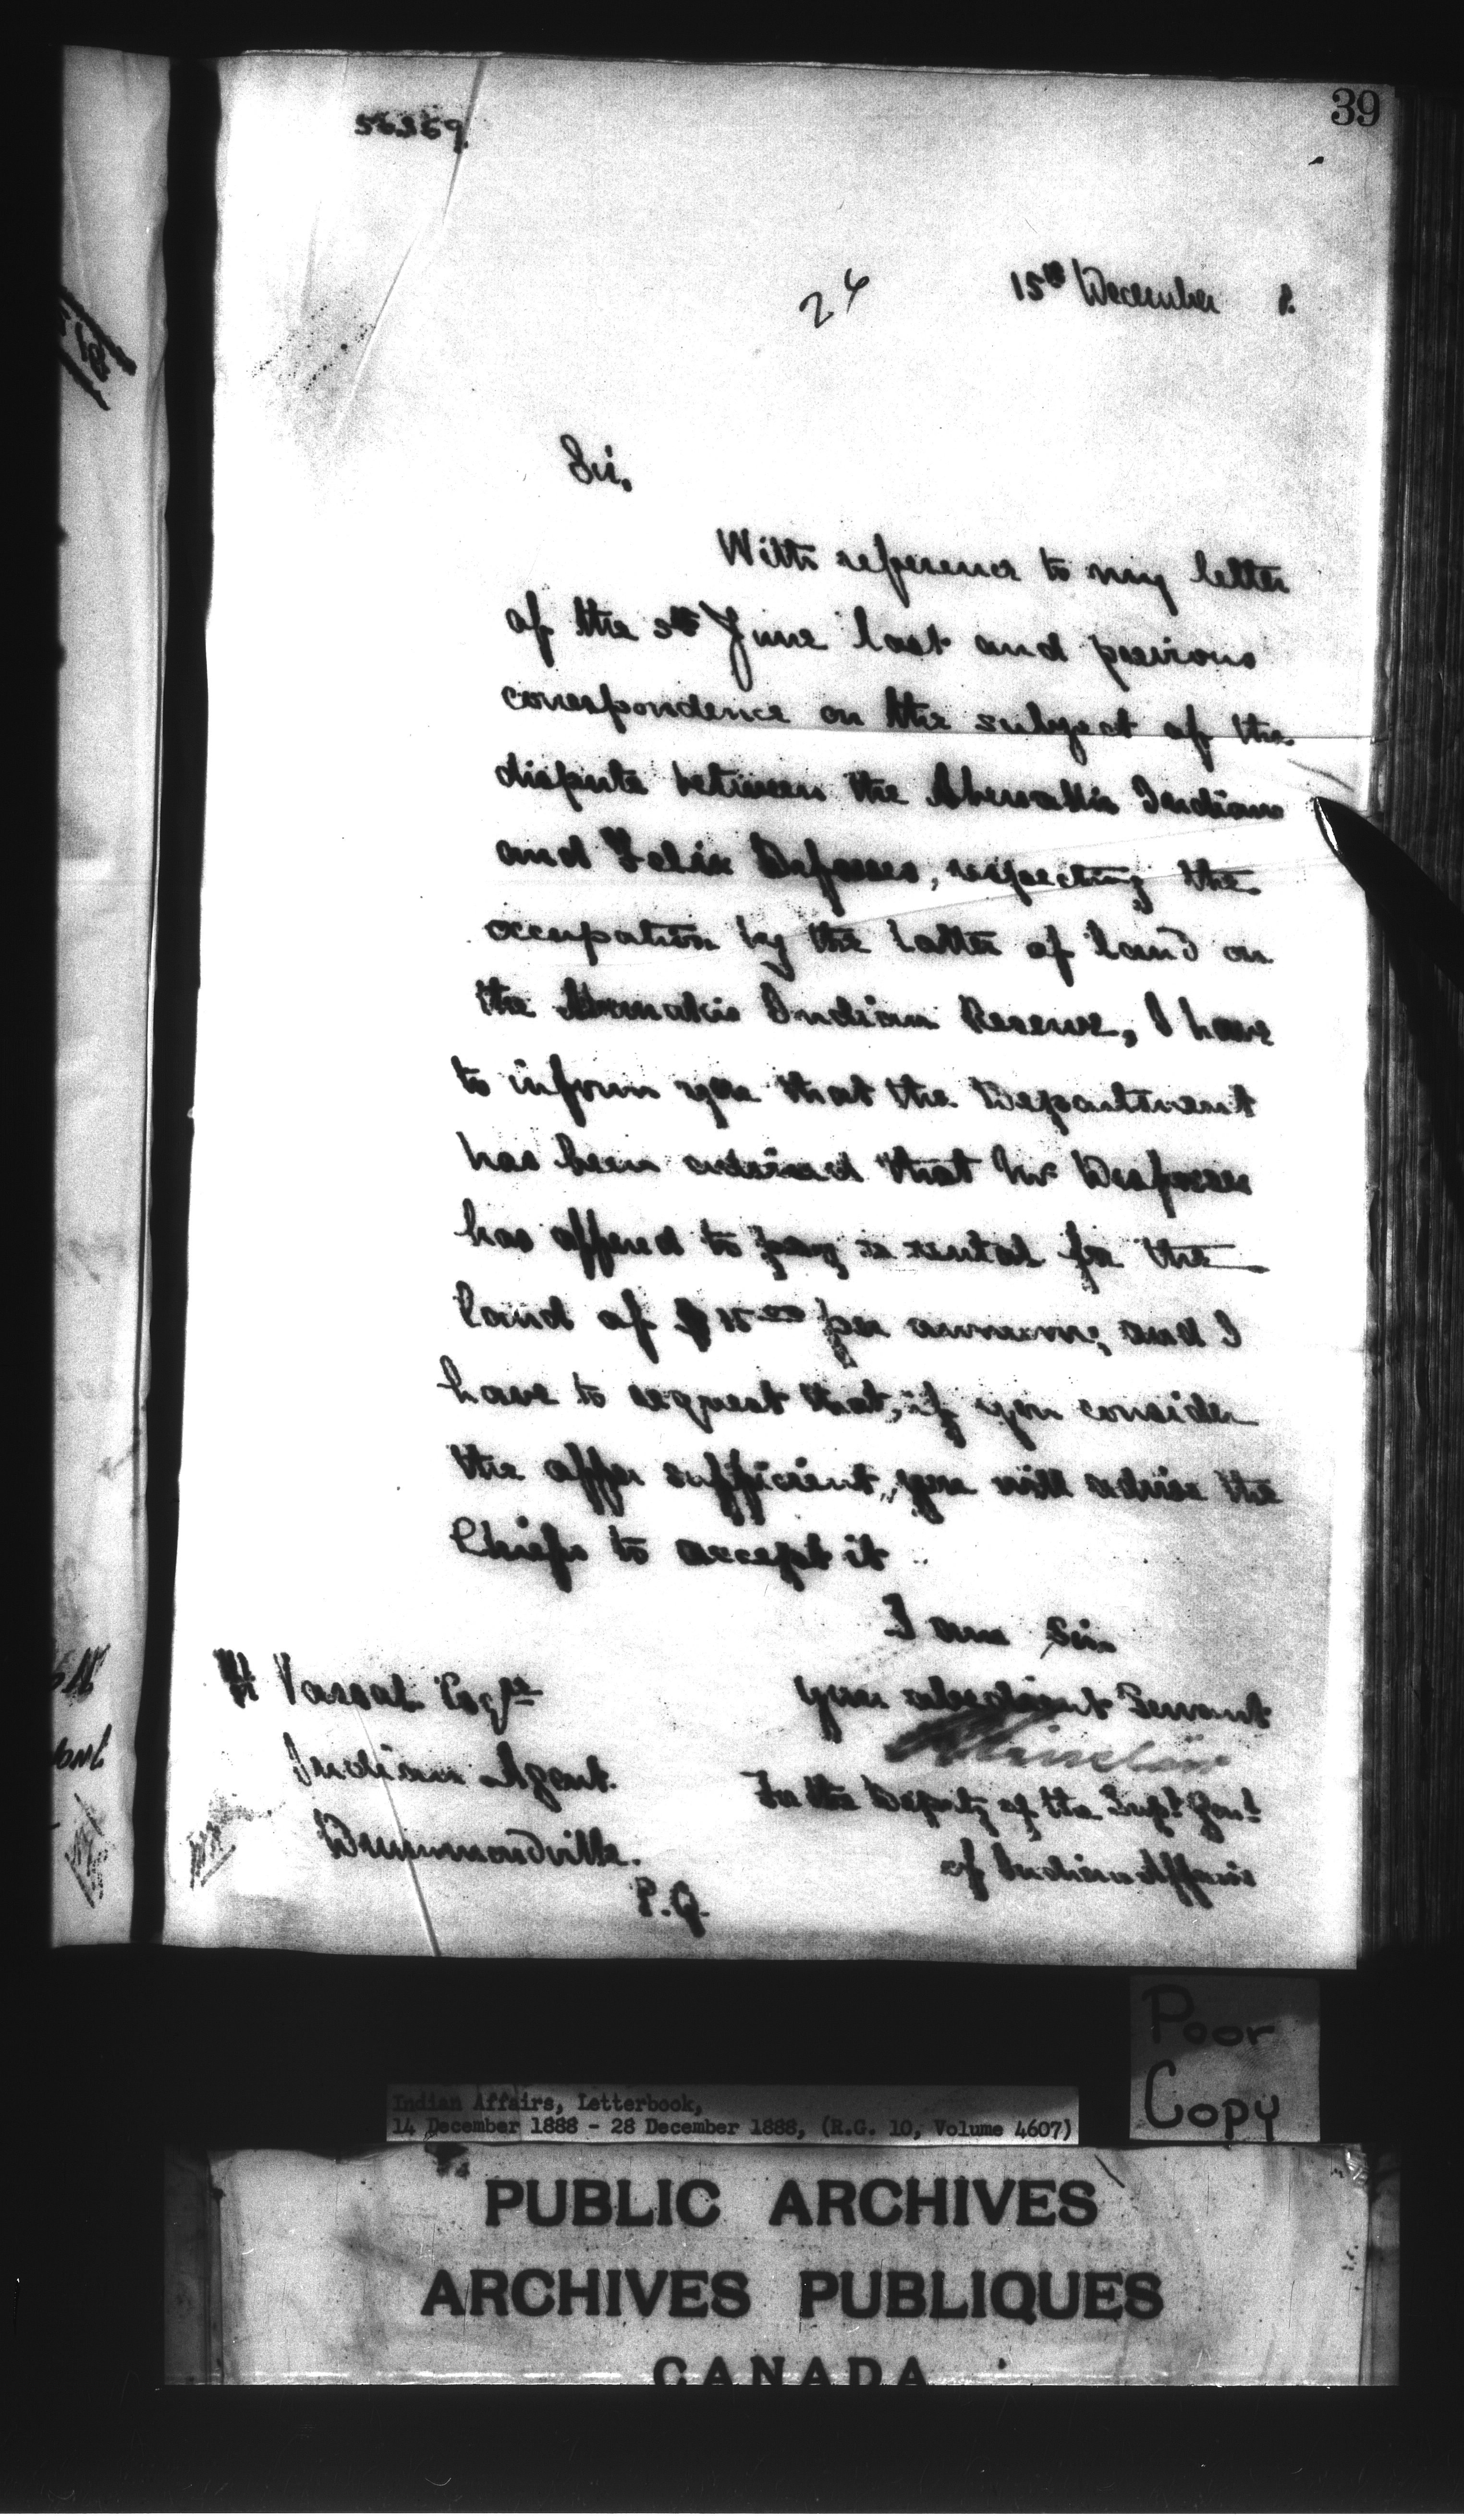 39
24
15th December 8.
Sir,
With reference to my letter
of the 5th June last and previous
correspondence on the subject of the
dispute between the Abenakis Indians
and Felix Desfosses, respecting the
occupation by the latter of land on
the Abenakis Indian Reserve, I have
to inform you that the Department
has been advised that Mr Desfosses
has offered to pay a rental for the
land of $15.00 per annum; and I
have to request that, if you consider
the offer sufficient, you will advise the
Chiefs to accept it
I am Sir
Your obedient Servant
For the Deputy of the Supt. Genl
of Indian Affairs
Vassal Esqre
Indian Agent.
Drummondville.
P.Q.
Poor
Copy
Indian Affairs, Letterbook,
14 December 1888 - 28 December 1888, (R.G. 10, Volume 4607)
PUBLIC ARCHIVES
ARCHIVES PUBLIQUES
CANADA